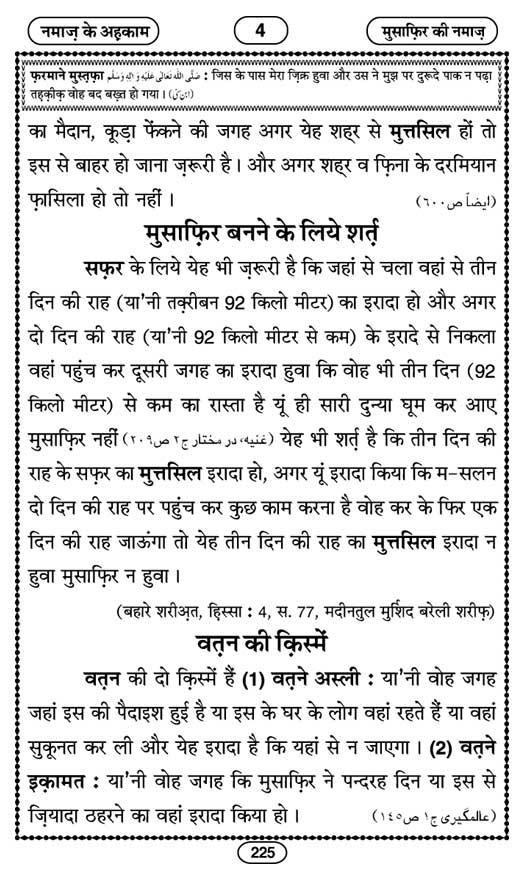 नमाज़ के अह़काम
4
मुसाफ़िर की नमाज़
फ़रमाने मुस्त़फ़ा صَلَّى اللّٰه تَعَالٰى عَلَيْهِ وَاٰلِهٖ وَسَلَّم : जिस के पास मेरा ज़िक्र हुवा और उस ने मुझ पर दुरूदे पाक न पढ़ा
तह़क़ीक़ वोह बद बख़्त हो गया। (ابن سنی)
का मैदान, कूड़ा फेंकने की जगह अगर येह शहर से मुत्तसिल हों तो
इस से बाहर हो जाना ज़रूरी है। और अगर शहर व फ़िना के दरमियान
फ़ासिला हो तो नहीं। (ایضاً ص ٦٠٠)
मुसाफ़िर बनने के लिये शर्त़
सफ़र के लिये येह भी ज़रूरी है कि जहां से चला वहां से तीन
दिन की राह (या'नी तक़्रीबन 92 किलो मीटर) का इरादा हो और अगर
दो दिन की राह (या'नी 92 किलो मीटर से कम) के इरादे से निकला
वहां पहुंच कर दूसरी जगह का इरादा हुवा कि वोह भी तीन दिन (92
किलो मीटर) से कम का रास्ता है यूं ही सारी दुन्या घूम कर आए
मुसाफ़िर नहीं (غنیه، در مختار ج٢ ص٢٠٩) येह भी शर्त़ है कि तीन दिन की
राह के सफ़र का मुत्तसिल इरादा हो, अगर यूं इरादा किया कि म-सलन
दो दिन की राह पर पहुंच कर कुछ काम करना है वोह कर के फिर एक
दिन की राह जाऊंगा तो येह तीन दिन की राह का मुत्तसिल इरादा न
हुवा मुसाफ़िर न हुवा।
(बहारे शरीअ़त, हिस्सा : 4, स. 77, मदीनतुल मुर्शिद बरेली शरीफ़)
वत़न की क़िस्में
वत़न की दो क़िस्में हैं (1) वत़ने अस्ली : या'नी वोह जगह
जहां इस की पैदाइश हुई है या इस के घर के लोग वहां रहते हैं या वहां
सुकूनत कर ली और येह इरादा है कि यहां से न जाएगा। (2) वत़ने
इक़ामत : या'नी वोह जगह कि मुसाफ़िर ने पन्दरह दिन या इस से
ज़ियादा ठहरने का वहां इरादा किया हो। (عالمگیری ج١ ص١٤٥)
225